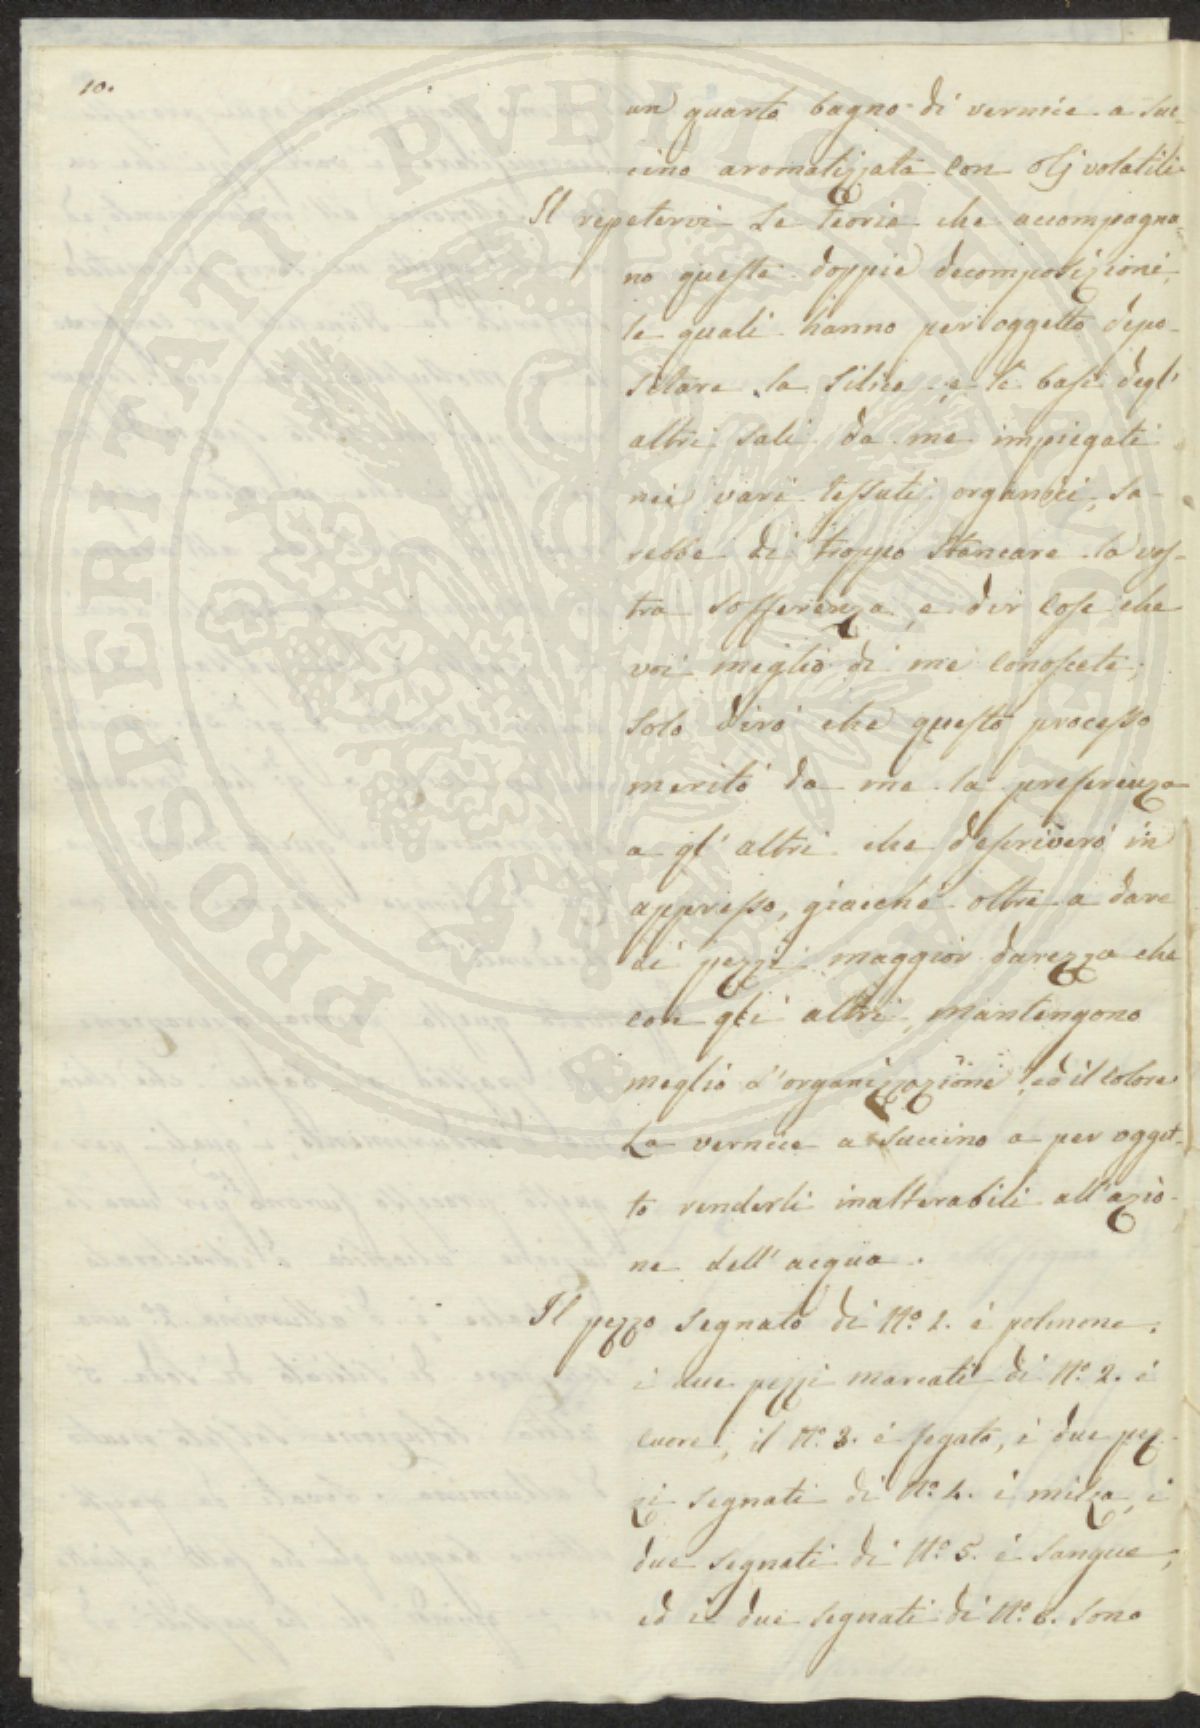 10.
un quarto bagno di vernice a suc-
cino aromatizzata con olj volatili.
Il repetervi le teorie che accompagna-
no queste doppie decomposizioni,
le quali hanno per oggetto depo-
sitare la silice, e le basi degl'
altri sali da me impiegati
nei vari tessuti organici, sa-
rebbe di troppo stancare la vos-
tra sofferenza, e dir cose che
voi meglio di me conoscete;
solo dirò che questo processo
meritò da me la preferenza
a gl'altri che descriverò in
appresso, giacché oltre a dare
ai pezzi maggior durezza che
con gli altri, mantengono
meglio l'organizzazione, ed il colore.
La vernice a succino a per ogget-
to renderli inalterabili all'azio-
ne dell'acqua.
Il pezzo segnato di N.º 1. é polmone;
i due pezzi marcati di N.º 2. é
cuore; il N.º 3. é fegato, i due pez-
zi segnati di N.º 4. é milza, i
due segnati di N.º 5. é sangue,
ed i due segnati di N.º 6. sono
PROSPERITATI PUBLICAE AUGENDAE